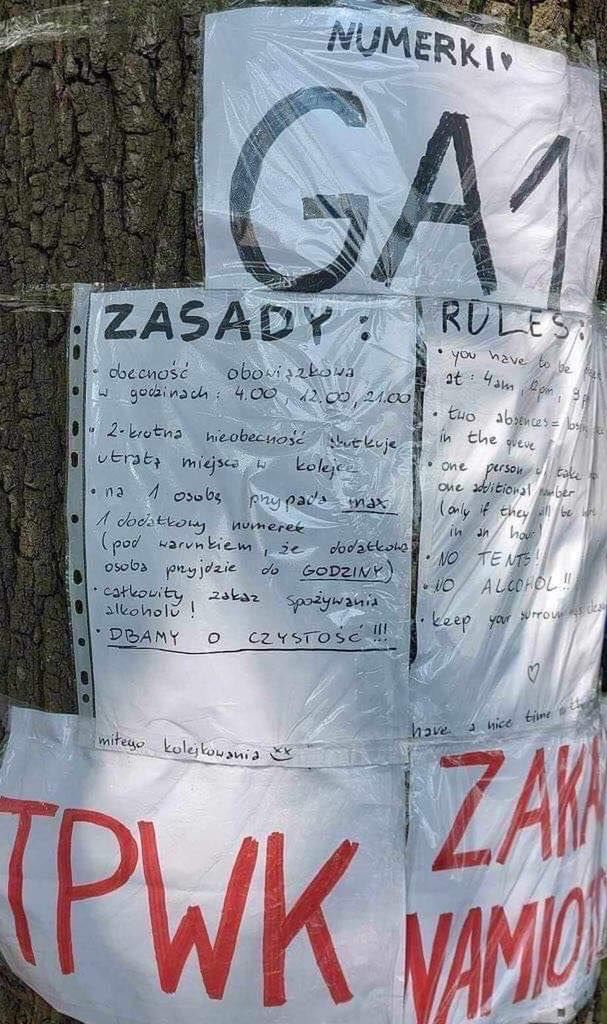 NUMERKI♥
GA1
ZASADY:
• obecność obowiązkowa
w godzinach: 4.00, 12.00, 21.00
• 2-krotna nieobecność skutkuje
utratą miejsca w kolejce
• na 1 osobę przypada max
1 dodatkowy numerek
(pod warunkiem, że dodatkowa
osoba przyjdzie do GODZINY)
• całkowity zakaz spożywania
alkoholu!
• DBAMY O CZYSTOŚĆ!!!
miłego kolejkowania xx
RULES:
• you have to be
at: 4am, 12pm, 9pm
• two absences =
in the queue
• one person take
one additional number
(only if they will be
in an hour)
• NO TENTS!
• NO ALCOHOL!!
• keep your
♡
have a nice time
TPWK
ZAKA
NAMIO